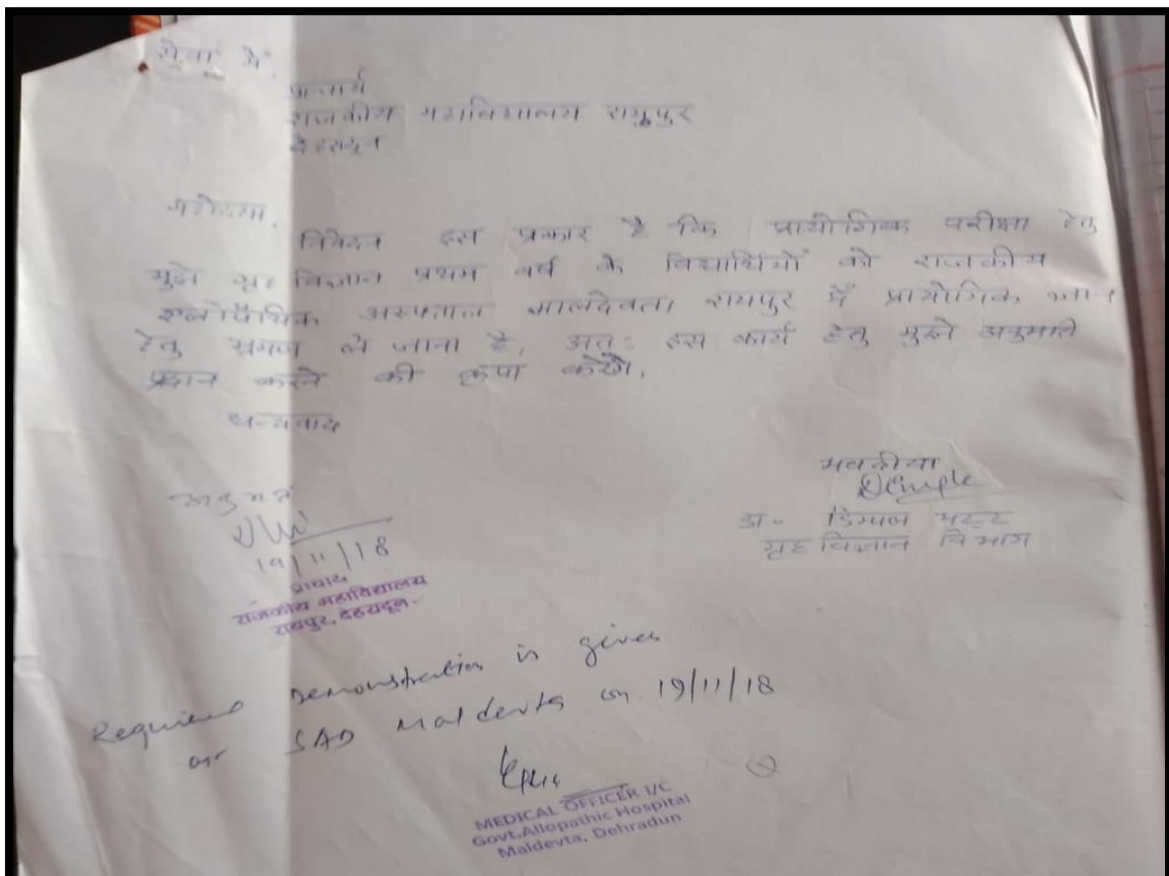 सेवा में,
प्राचार्य
राजकीय महाविद्यालय रायपुर
देहरादून
महोदया,
निवेदन इस प्रकार है कि प्रायोगिक परीक्षा हेतु
मुझे गृह विज्ञान प्रथम वर्ष के विद्यार्थियों को राजकीय
एलोपैथिक अस्पताल मालदेवता रायपुर में प्रायोगिक ज्ञान
हेतु भ्रमण ले जाना है, अतः इस कार्य हेतु मुझे अनुमति
प्रदान करने की कृपा करेंगे,
धन्यवाद
भवदीया
Dimple
डा० डिम्पल भट्ट
गृह विज्ञान विभाग
19/11/18
प्राचार्य
राजकीय महाविद्यालय
रायपुर, देहरादून
Required Demonstration is given
SAD Maldevta on 19/11/18
MEDICAL OFFICER I/C
Govt.Allopathic Hospital
Maldevta, Dehradun